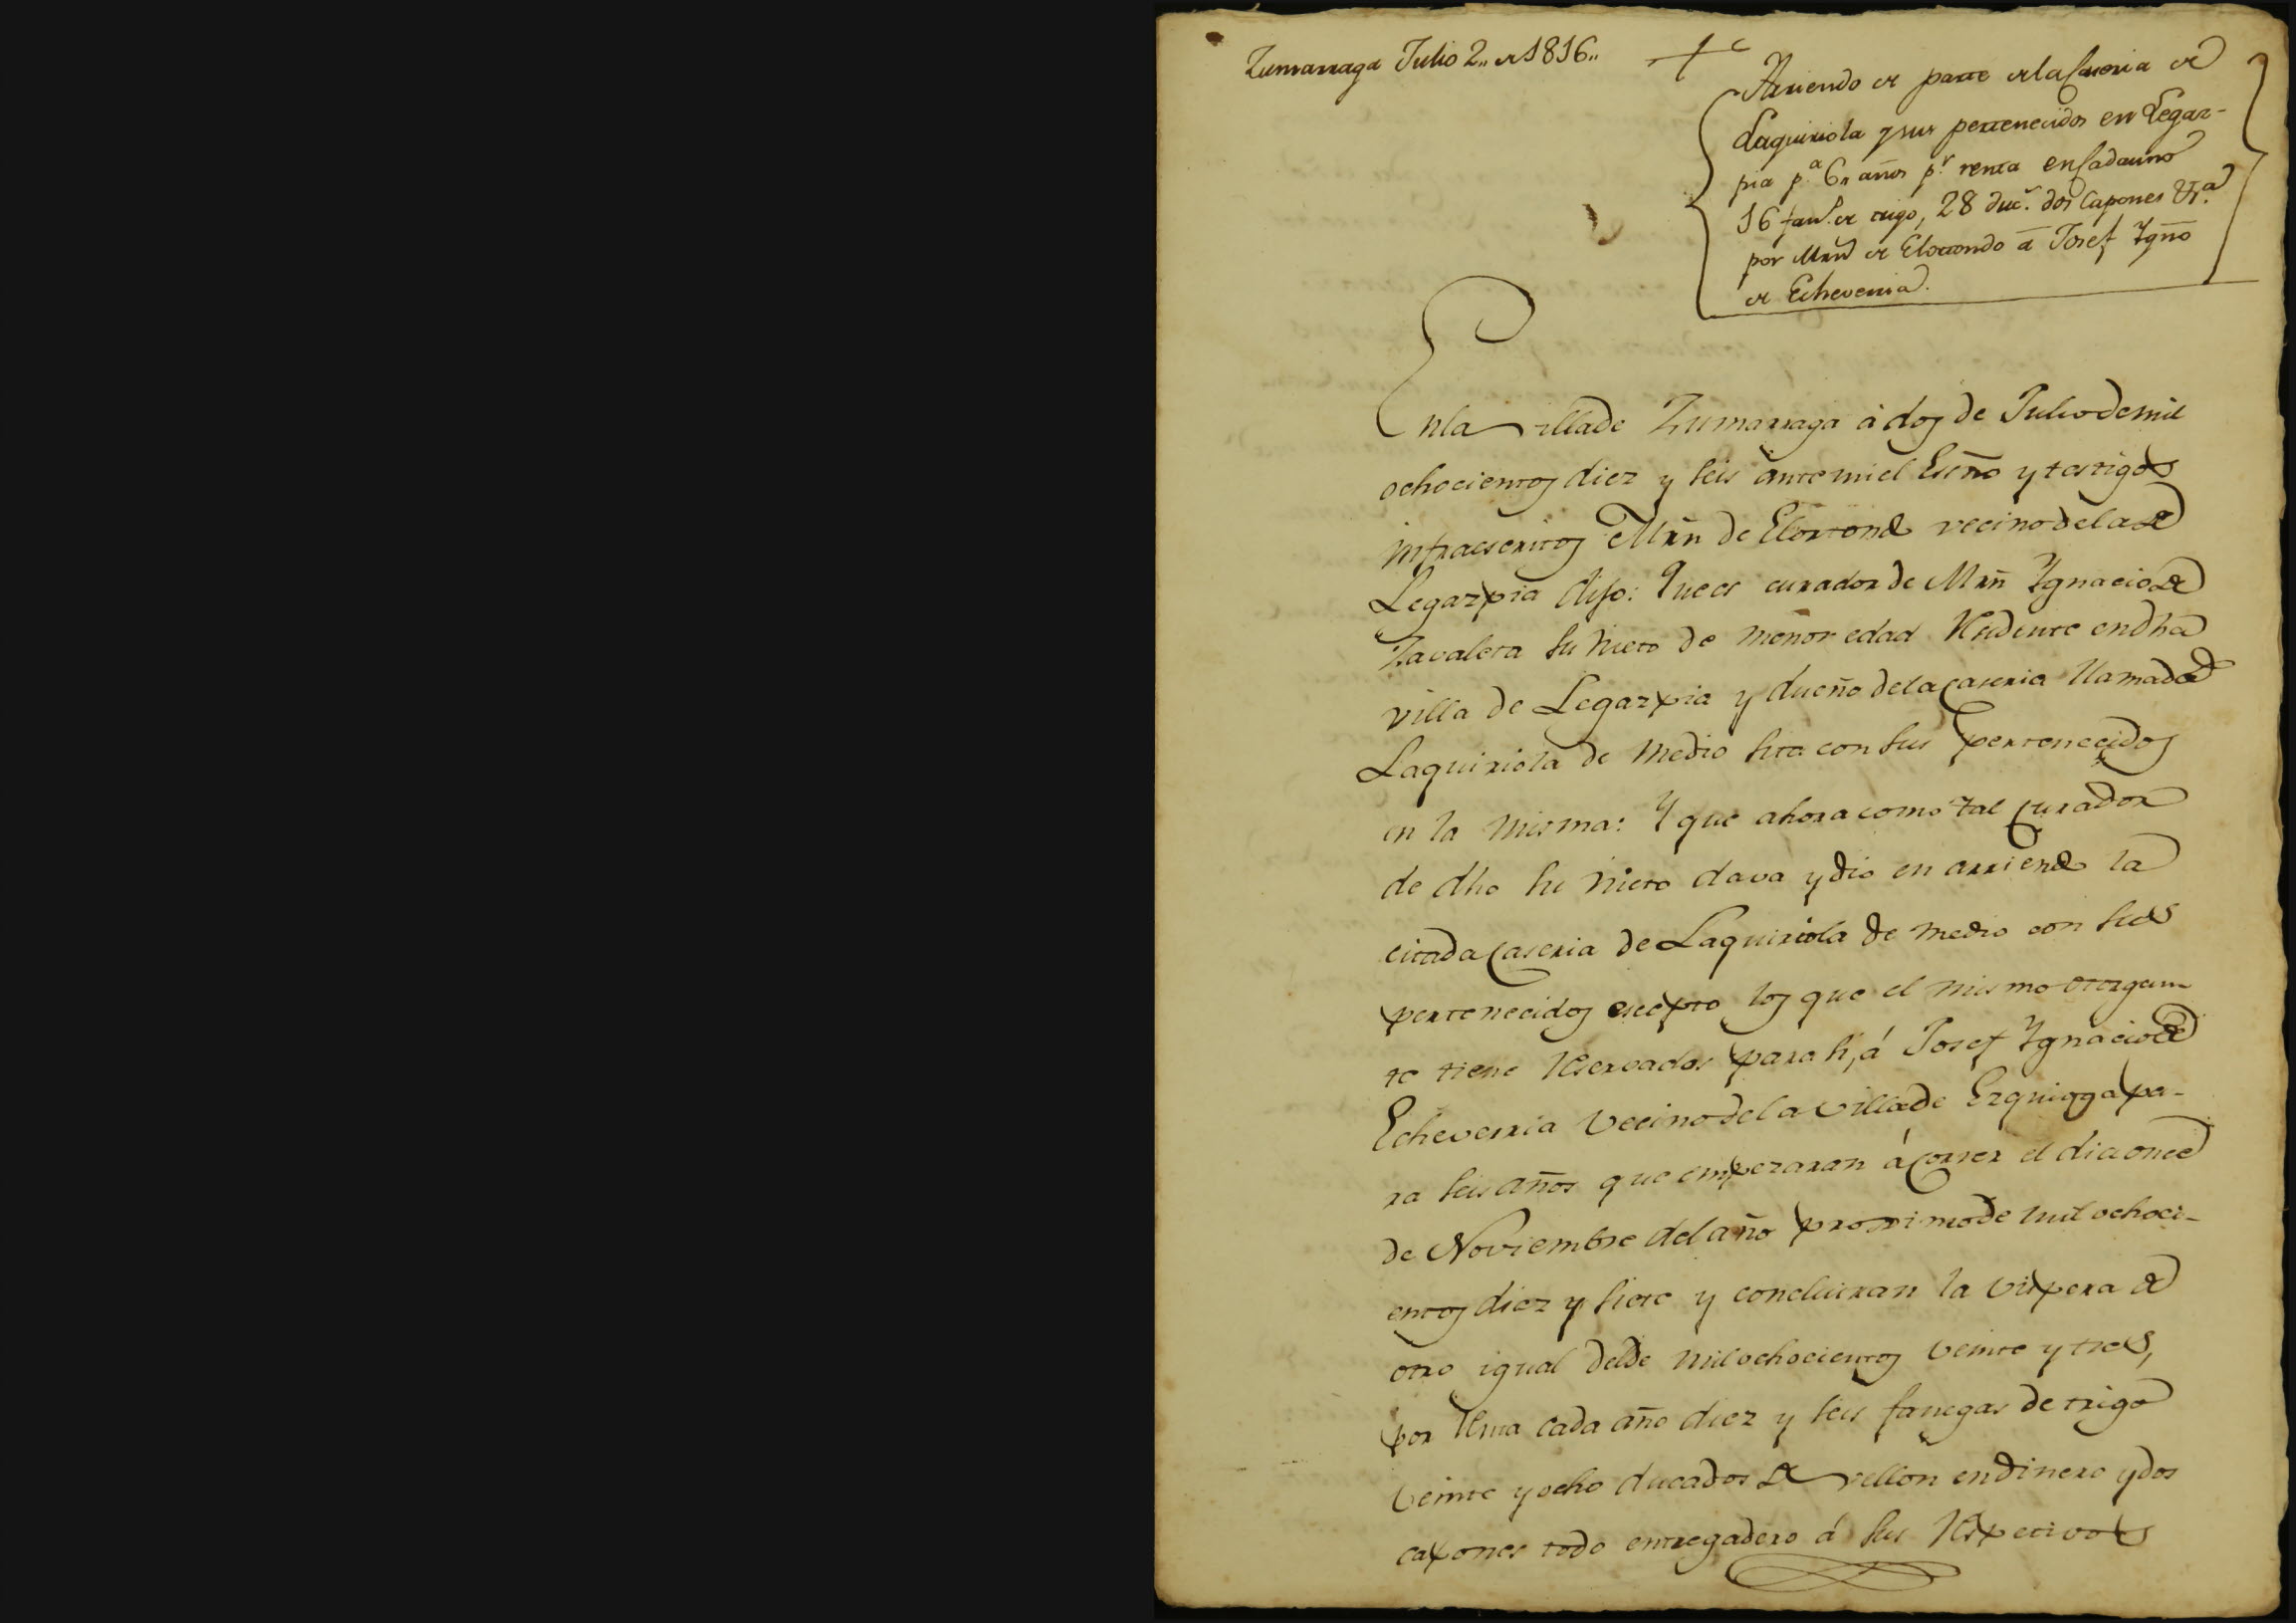 Zumarraga Julio 2,, de 1816,,
Arriendo de parte de la Caseria de
Laquiriola y sus pertenecidos en Legaz-
pia p.ª 6,, años p.r renta en Cada uno
16 fan.s de trigo, 28 duc.s dos Capones &.ª
por Mrn de Elorrondo á Josef Ygño
de Echeverria.
En la villa de Zumarraga á dos de Julio de mil
ochocientos diez y seis ante mi el Esño y testigos
infraescritos Mrñ de Elorrondo vecino de la de
Legazpia dijo: Que es curador de Mrñ Ygnacio de
Zavaleta su Nieto de menor edad Residente en dha
villa de Legazpia y dueño dela Caseria llamada
Laquiriola de Medio sita con sus pertenecidos
en la misma: Y que ahora como tal Curador
de dho su Nieto dava y dio en arriendo la
citada Caseria de Laquiriola de medio con sus
pertenecidos esepto los que el mismo otorgan-
te tiene Reservados para si, á Josef Ygnacio de
Echeverria Vecino de la Villa de Ezquioga pa-
ra seis años que empezaran á Correr el dia once
de Noviembre del año proximo de mil ochoci-
entos diez y siete y concluiran la vispera de
otro igual del de mil ochocientos veinte y tres,
por Renta cada año diez y seis fanegas de trigo
veinte y ocho ducados de vellon en dinero y dos
capones todo entregadero á sus Respetivos